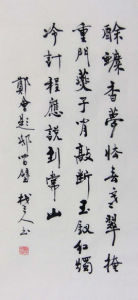 酴醾香夢怯春寒翠掩
重門燕子閒敲断玉釵紅燭
冷計程應說到常山
鄭會題邸間壁